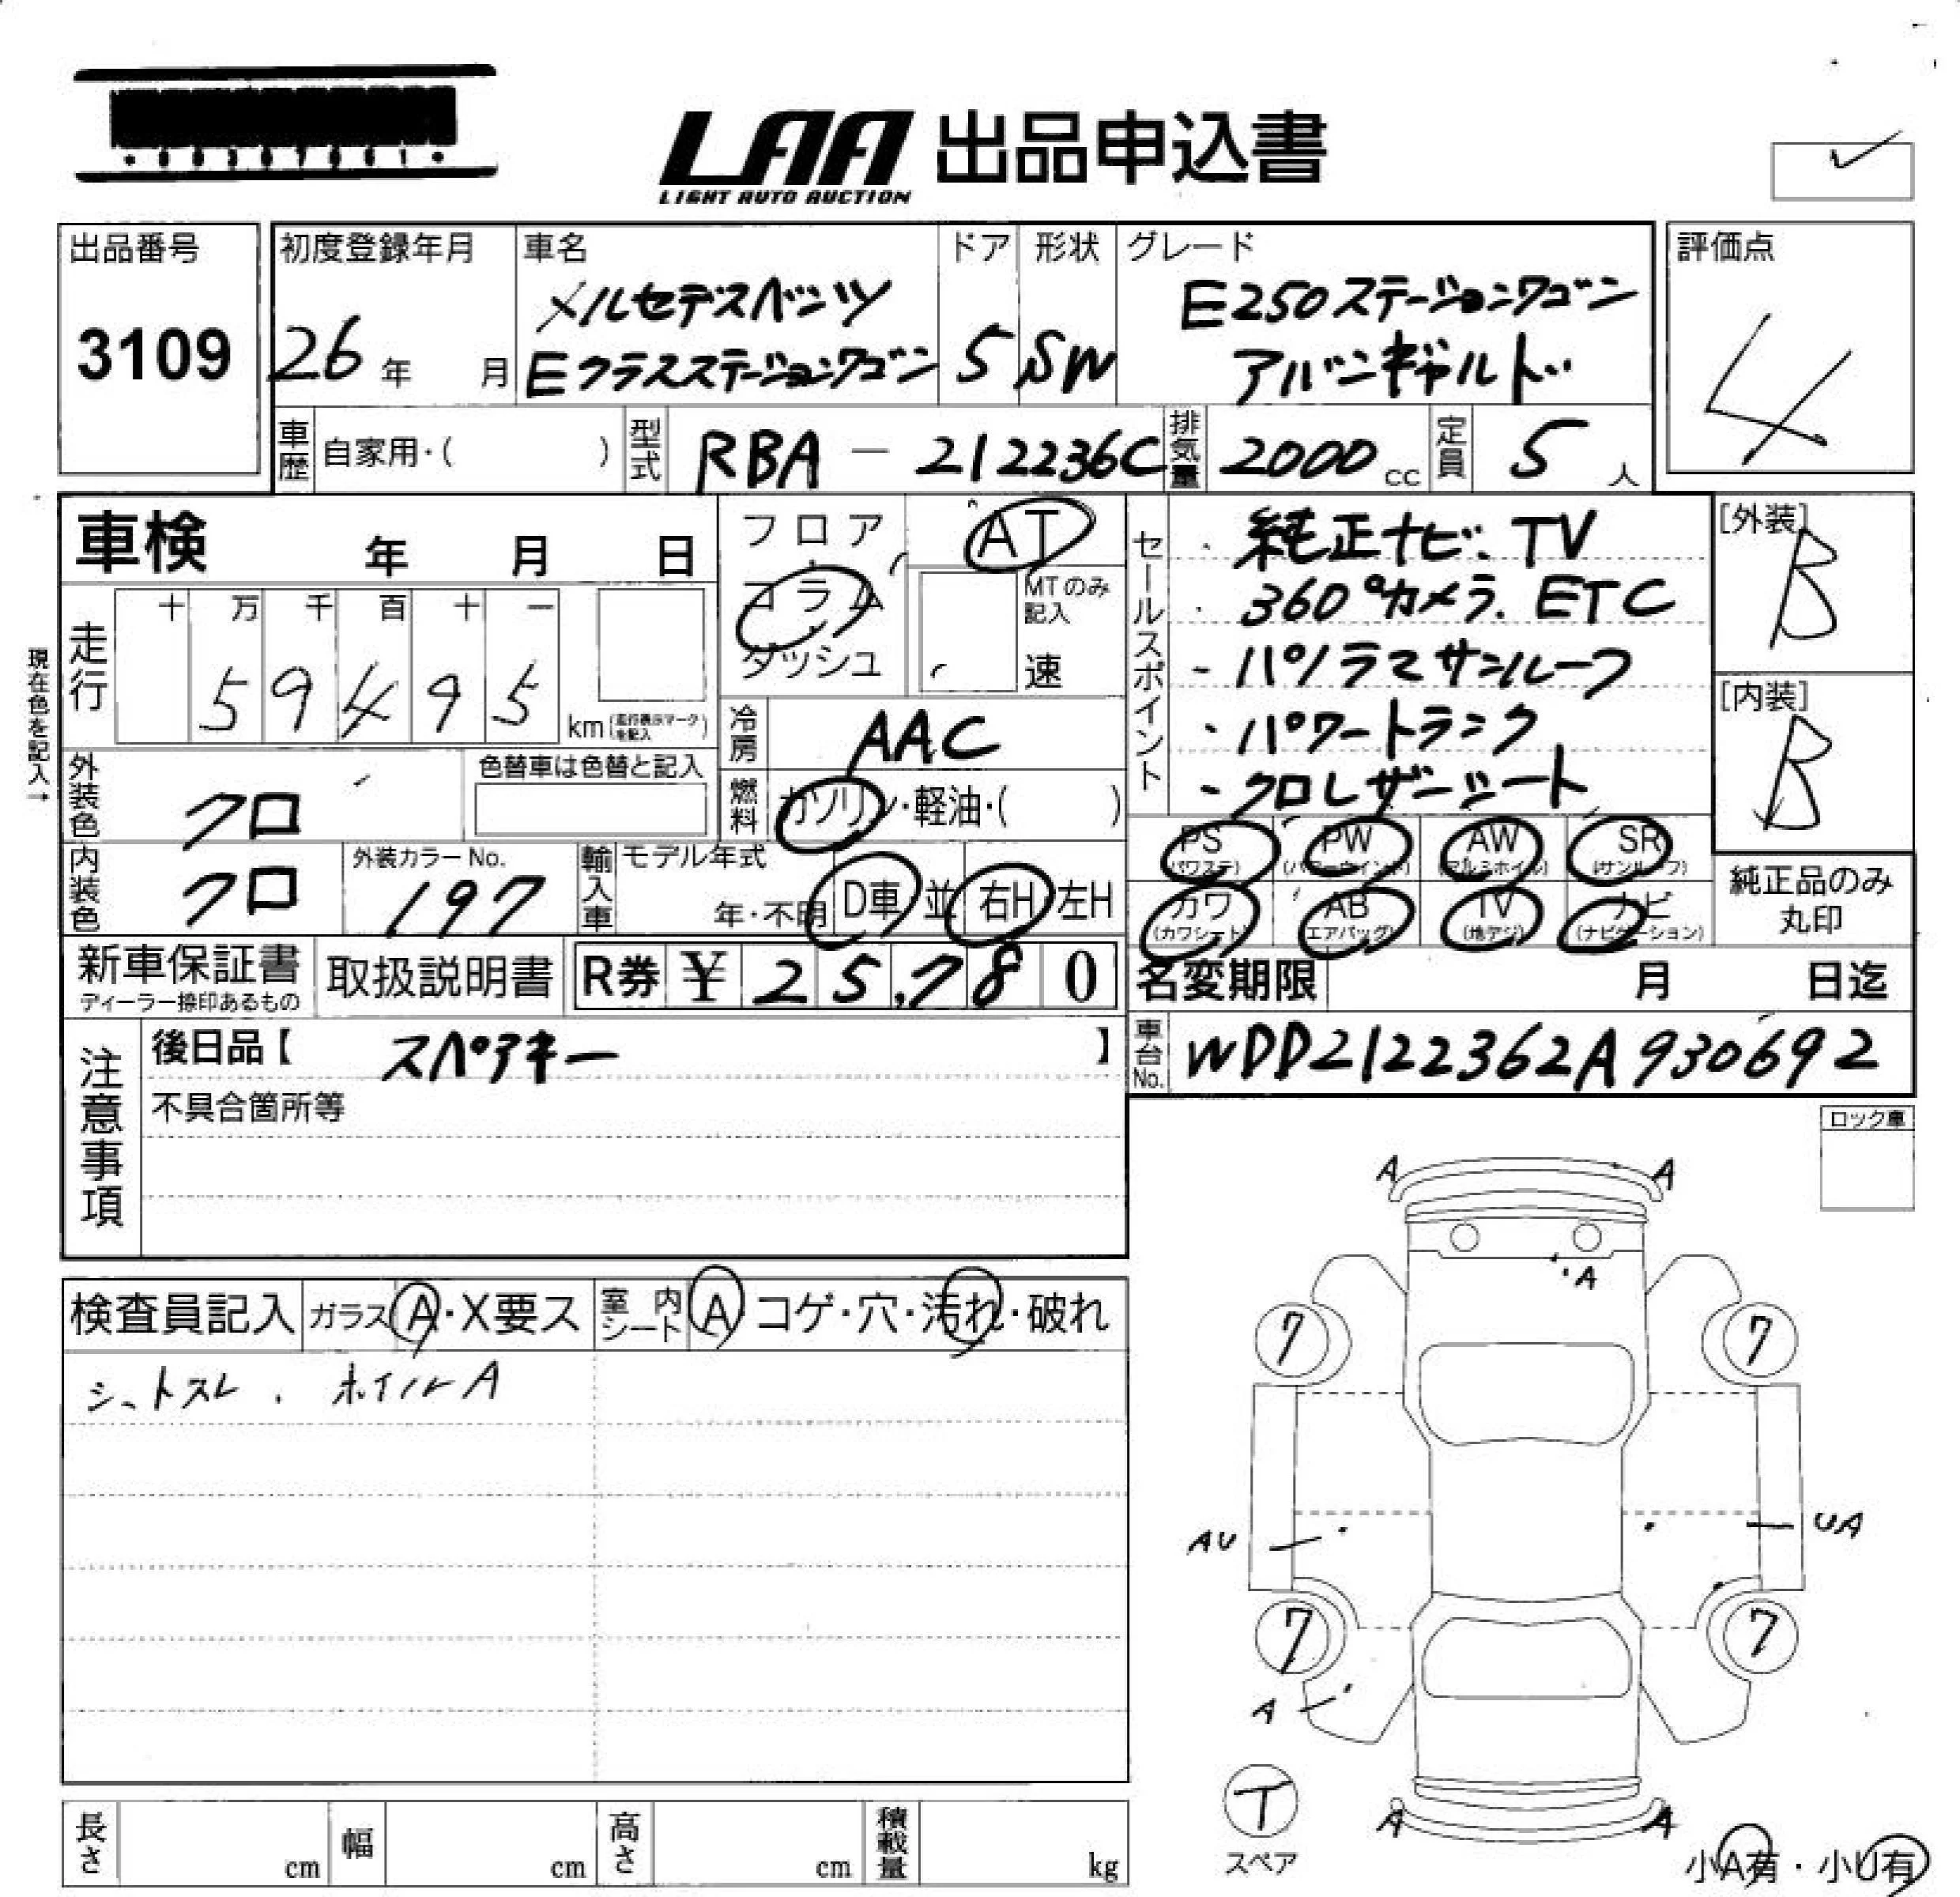 LAA 出品申込書
LIGHT AUTO AUCTION
出品番号
3109
初度登録年月
26年 月
車名
メルセデスベンツ
Eクラスステーションワゴン
ドア
5
形状
SW
グレード
E250ステーションワゴン
アバンギャルド
評価点
4
車歴 自家用・( )
型式 RBA-212236C
排気量 2000cc
定員 5人
車検 年 月 日
フロア
コラム
ダッシュ
AT
MTのみ
記入
速
現在色を記入→
走行
十 万 千 百 十 一
5 9 4 9 5
km(走行表示マークを記入)
冷房 AAC
外装色 クロ
色替車は色替と記入
燃料 ガソリン・軽油・( )
内装色 クロ
外装カラーNo.
197
輸入車
モデル年式
年・不明
D車 並 右H 左H
セールスポイント
・純正ナビ.TV
・360°カメラ.ETC
・パノラマサンルーフ
・パワートランク
・クロレザーシート
[外装]
B
[内装]
B
PS
(パワステ)
PW
(パワーウインド)
AW
(アルミホイル)
SR
(サンルーフ)
カワ
(カワシート)
AB
エアバッグ)
TV
(地デジ)
ナビ
(ナビゲーション)
純正品のみ
丸印
新車保証書
ディーラー捺印あるもの
取扱説明書
R券 ¥ 25,780
名変期限 月 日迄
注意事項
後日品【 スペアキー 】
不具合箇所等
車台No. WDD2122362A930692
ロック車
検査員記入
ガラス A・X要ス
室内シート A コゲ・穴・汚れ・破れ
シートスレ . ホイルA
A A
A
7 7
AU UA
7 7
A
T
スペア
A A
小A有・小U有
長さ cm
幅 cm
高さ cm
積載量 kg